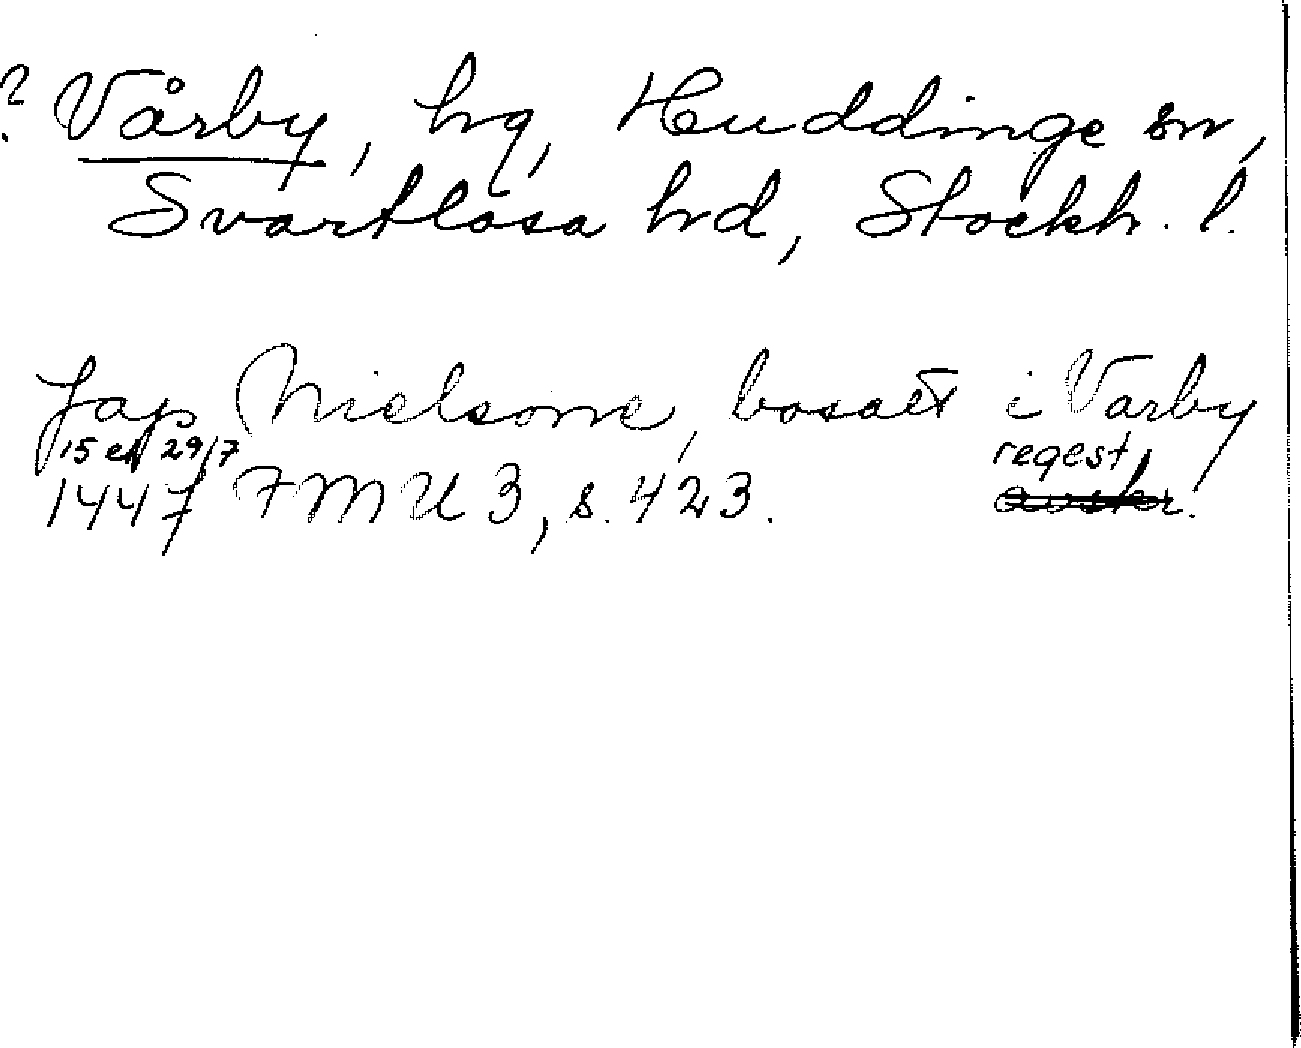 ? Vårby, hg, Huddinge sn,
Svartlösa hd, Stockh. l.
Jap Nielsone, bosatt i Varby
15 el 29/7 regest,
1447 FMU 3, s. 423.